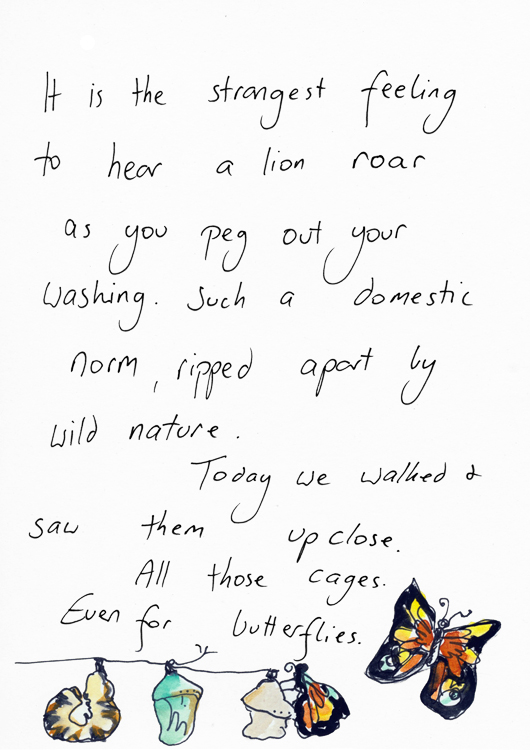 It is the strangest feeling
to hear a lion roar
as you peg out your
washing. Such a domestic
norm, ripped apart by
wild nature.
Today we walked &
saw them up close.
All those cages.
Even for butterflies.